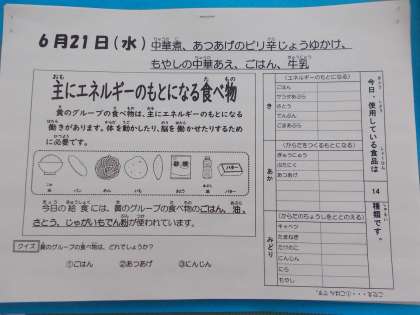 6月21日(水) 中華煮、あつあげのピリ辛じょうゆかけ、
もやしの中華あえ、ごはん、牛乳
主にエネルギーのもとになる食べ物
黄のグループの食べ物は、主にエネルギーのもとになる
働きがあります。体を動かしたり、脳を働かせたりするため
に必要です。
米 パン めん いも さとう 油 バター
砂糖
バター
今日の給食には、黄のグループの食べ物のごはん、油、
さとう、じゃがいもでん粉が使われています。
クイズ 黄のグループの食べ物は、どれでしょうか?
①ごはん ②あつあげ ③にんじん
今日、使用している食品は
14
種類です。
き
(エネルギーのもとになる)
ごはん
サラダあぶら
さとう
でんぷん
ごまあぶら
あか
(からだをつくるもとになる)
ぎゅうにゅう
ぶたにく
あつあげ
みどり
(からだのちょうしをととのえる)
キャベツ
たまねぎ
たけのこ
にんじん
にら
もやし
こたえ・・・①ごはん です。